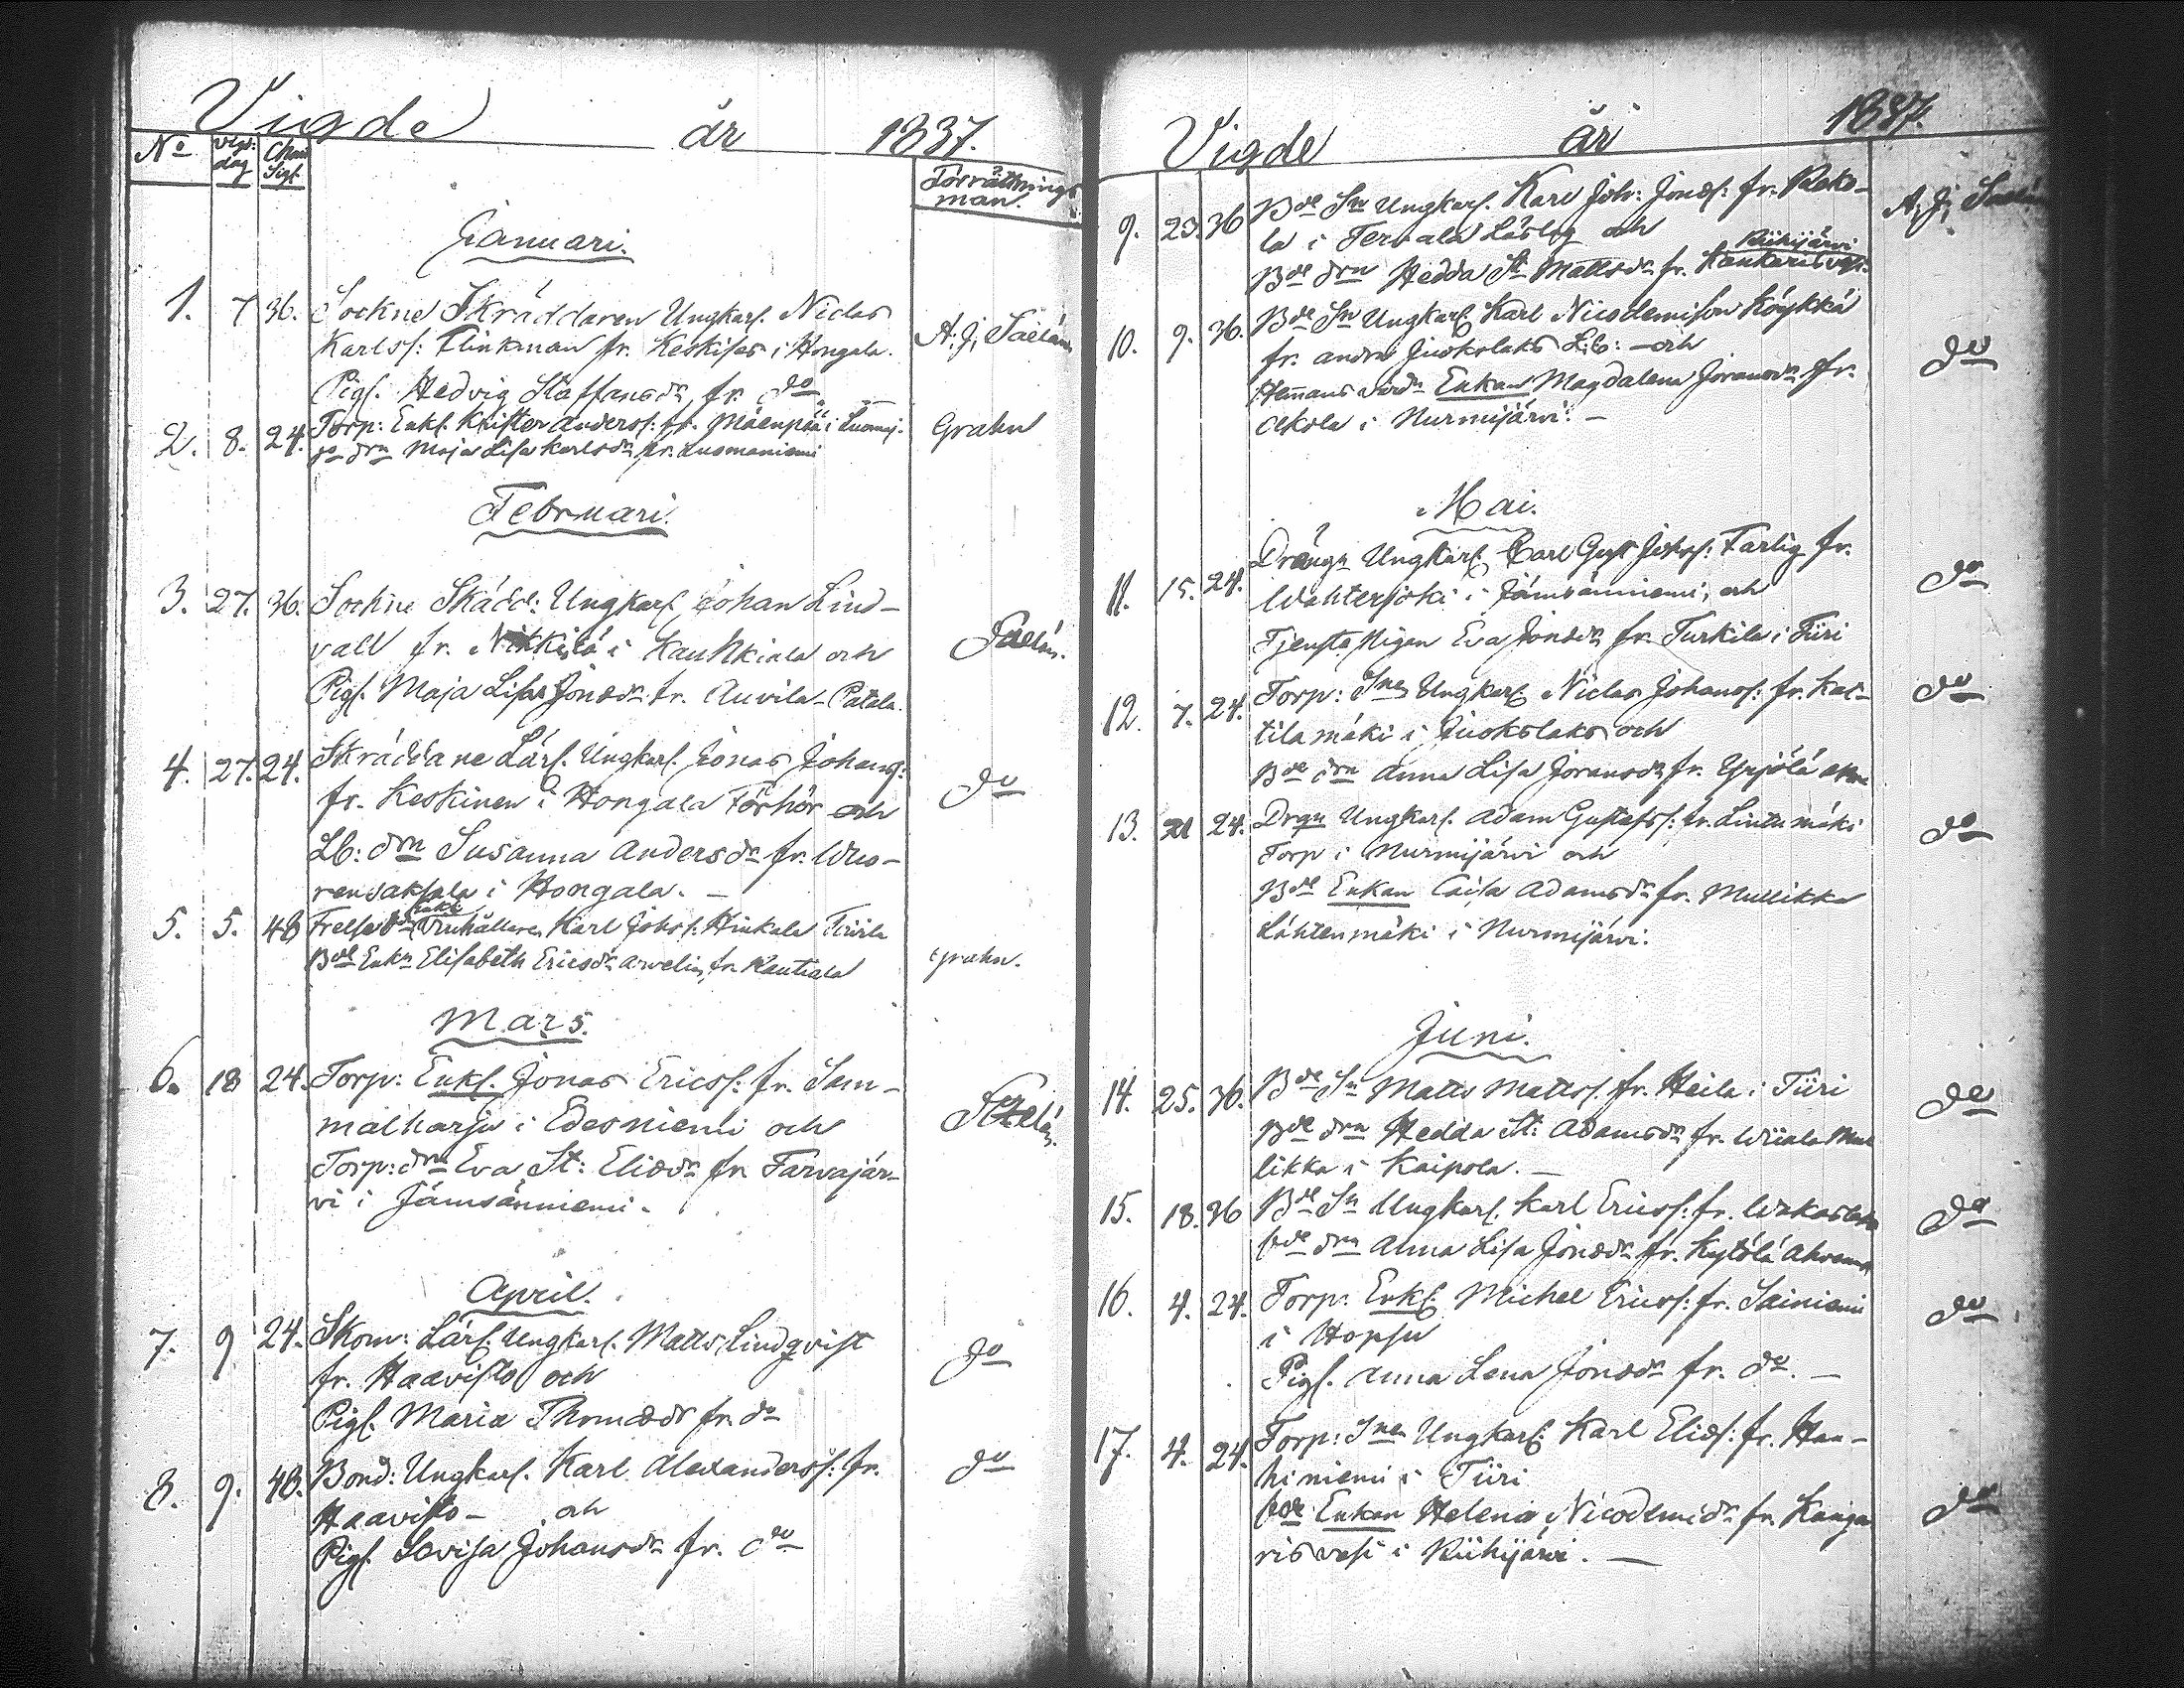 Vigde år 1837.
No Vigs: dag Char Sigl. Förrättnings man.
Januari.
1. 7 36. Sockne Skräddaren Ungkarl. Niclas
Karlss: Flinkman fr. Keskisas i Hongala. A. J. Saelán
Pigs. Hedvig Staffansdr fr. do
2. 8. 24. Torp: Enkl. Krister Anderss: fr. Mäenpää i Luomaj. Grahn
do drn Maja Lisa Karlsdr fr. Luomaniemi
Februari.
3. 27. 36. Sockne Skädd: Ungkarl Johan Lind-
vall fr. Nikkilä i Kauhkiala och Saelán.
Pigs. Maja Lisa Jonaedr fr. Auvila-Patala.
4. 27. 24. Skräddare Lärl. Ungkarl. Jonas Johanss:
fr. Keskinen i Hongala Förhör och do
Lb: drn Susanna Andersdr fr. Wuo-
rensaksala i Hongala. -
5. 5. 48 Frelse Bdn Karl Johss. Hinkala Tiirila
Bde Enkn Elisabeth Ericsdr Arvelin, fr. Rautiala Grahn.
Mars.
6. 18 24. Torp: Enkl. Jonas Ericss: fr. Sam-
malharju i Edesniemi och Saelán.
Torp: drn Eva St: Eliaedr fr. Tarvajär-
vi i Jämsänniemi.
April.
7. 9 24. Skom: Lärl. Ungkarl. Matts Lindqvist
fr. Haavisto och do
Pigs. Maria Thomaedr fr. do
8. 9. 48. Bond: Ungkarl. Karl Alexanderss: fr. do
Haavisto - och
Pigs. Lovisa Johansdr fr. do
Vigde år 1837.
9. 23. 36 Bde Sn Ungkarl. Karl Joh: Jonaes: fr. Reko- A. J. Saelán
la i Tervala Läslag och
Riihijärvi
Bde drn Hedda St Mattsdr fr. Kankarisvesi.
10. 9. 36. Bde Sn Ungkarl Karl Nicodemison Köykkä
fr. andra Juokslaks L.b: - och do
Hemans Enkan Magdalena Joransdr fr.
Akola i Nurmijärvi. -
Mai.
11. 15. 24. Drängn Ungkarl. Carl Gust Johss: Farlig fr.
Wahterjoki i Jämsänniemi, och do
Tjenste Pigan Eva Jonaedr fr. Turkila i Tiiri
12. 7. 24. Torp: Snen Ungkarl Niclas Johanss: fr. Kat- do
tilamäki i Juokslaks och
Bde drn Anna Lisa Joransdr fr. Yrjölä
13. 21 24. Drgn Ungkarl. Adam Gustafss: fr. Lintumäki do
Torp i Nurmijärvi och
Bde Enkan Caisa Adamsdr fr. Mullikka
Lähtenmäki i Nurmijärvi.
Juni.
14. 25. 36. Bde Sn Matts Mattss. fr. Heila i Tiiri do
Bde drn Hedda St: Adamsdr fr. Wiiala Mul
likka i Kaipola. -
15. 18. 36 Bde Sn Ungkarl. Karl Ericss: fr. do
Bde drn Anna Lisa Jonaedr fr. Kytölä
16. 4. 24. Torp: Enkl. Michel Ericss: fr. Sainiemi do
i Hopsu
Pigs. Anna Lena Jonaedr fr. do. -
17. 4. 24. Torp: Snen Ungkarl. Karl Eliaes: fr. Hau-
hiniemi i Tiiri
Bde Enkan Helena Nicodemidr fr. Kanga do
risvesi i Riihijärvi. -